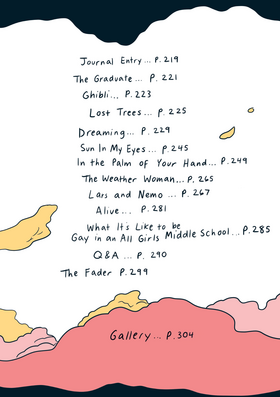 Journal Entry... P. 219
The Graduate... P. 221
Ghibli... P. 223
Lost Trees... P. 225
Dreaming... P. 229
Sun In My Eyes... P. 245
In the Palm of Your Hand... P. 249
The Weather Woman... P. 265
Lars and Nemo... P. 267
Alive... P. 281
What It's Like to be
Gay in an All Girls Middle School... P. 285
Q&A... P. 290
The Fader P. 299
Gallery... P. 304